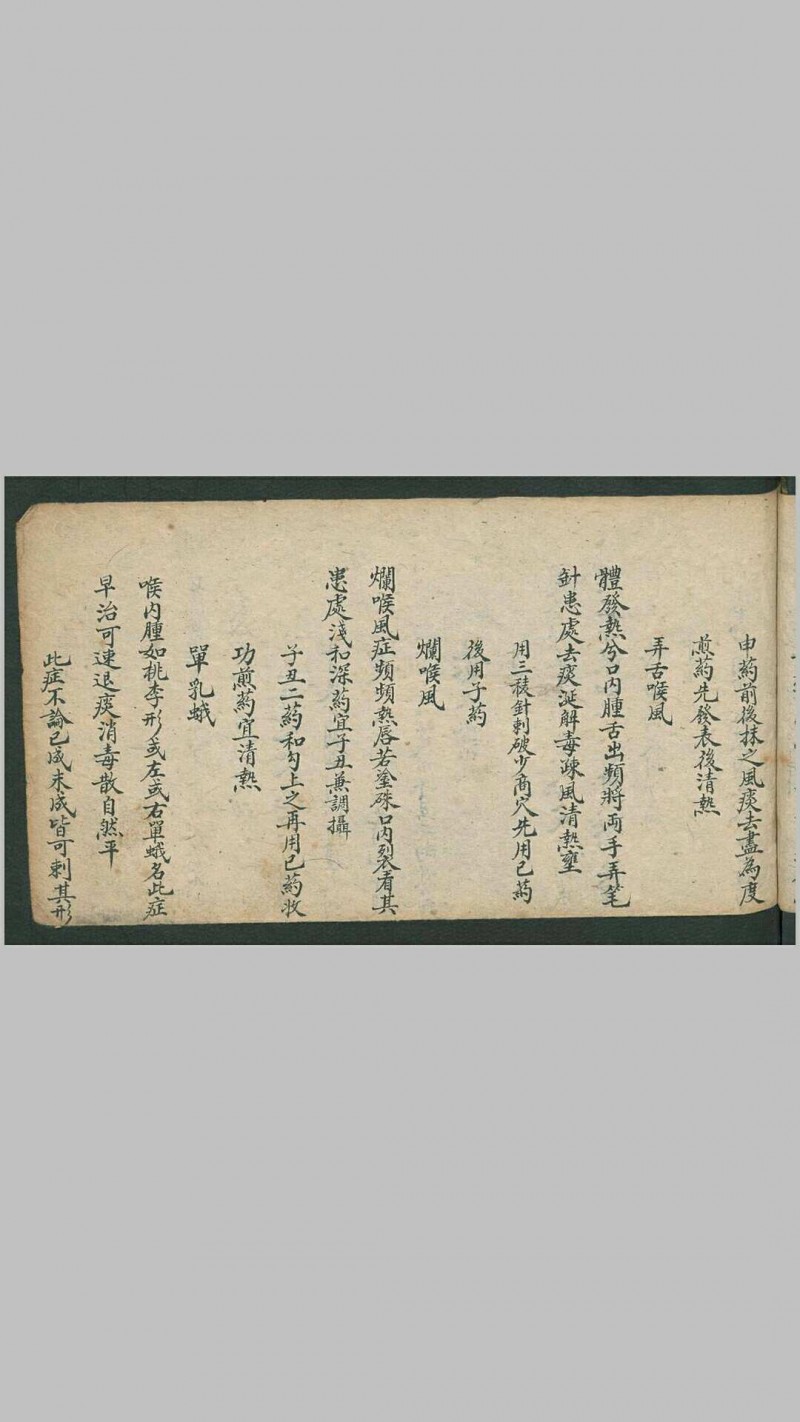 申药前後抹之風痰去盡為度
煎药先發表後清熱
弄舌喉風
體發熱兮口内腫舌出頻將両手弄笔
針患處去痰涎觧毒疎風清熱壅
用三稜針刺破少商穴先用已药
後用子药
爛喉風
爛喉風症頻頻熱唇若塗硃口内裂看其
患處淺和深药宜子丑兼調攝
子丑二药和匀上之再用已药收
功煎药宜清熱
單乳蛾
喉内腫如桃李形或左或右單蛾名此症
早治可速退痰消毒散自然平
此症不論已成未成皆可刺其形